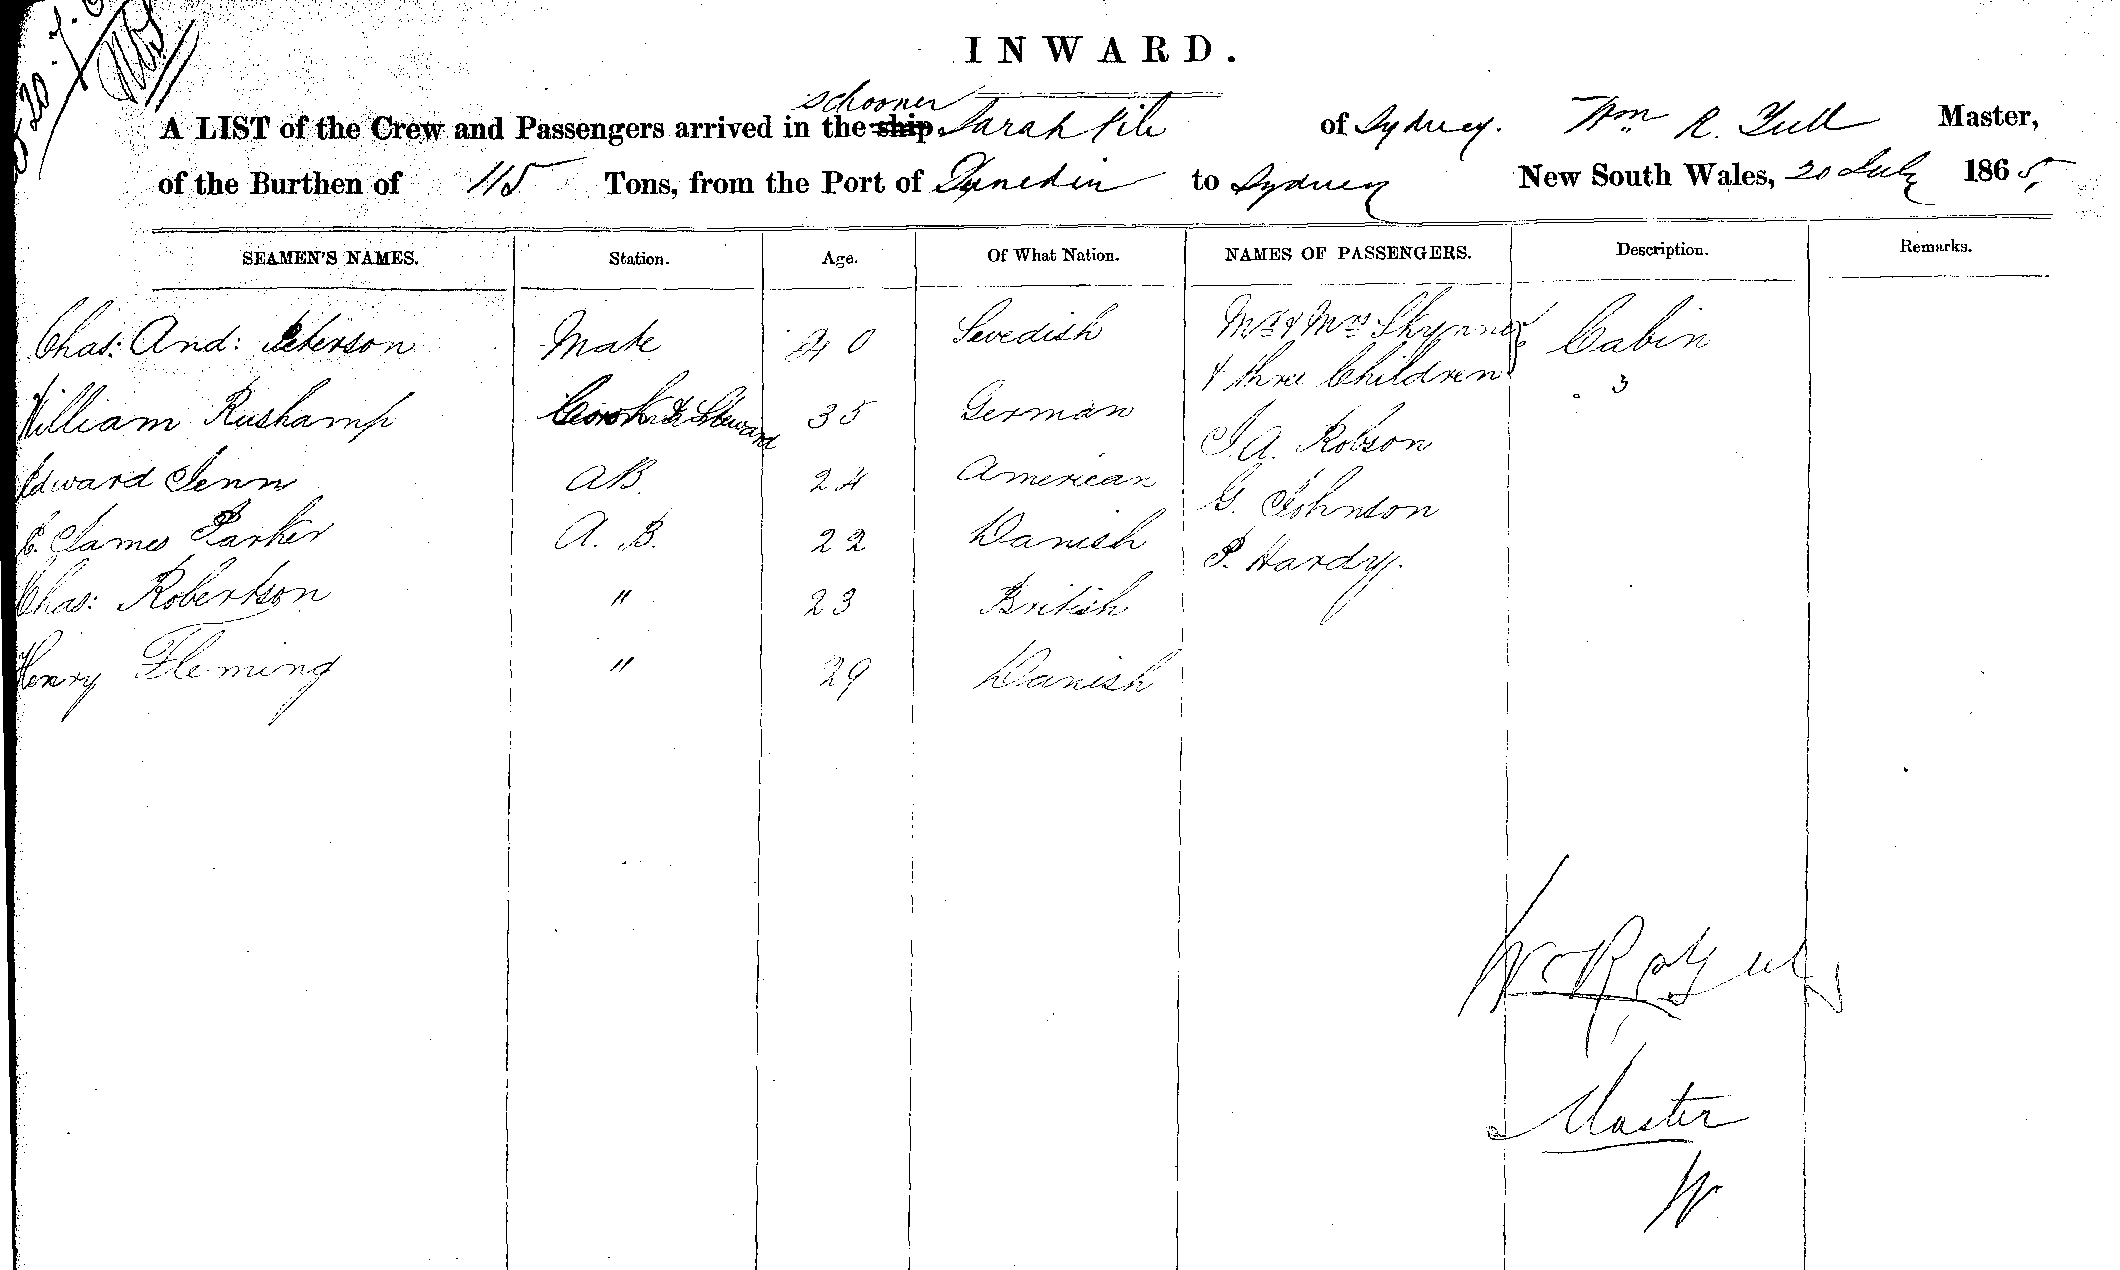 INWARD.
schooner
A LIST of the Crew and Passengers arrived in the ship Sarah Pile of Sydney. Wm R. Master,
of the Burthen of 115 Tons, from the Port of Dunedin to Sydney New South Wales, 20 July 1865,
SEAMEN'S NAMES. Station. Age. Of What Nation. NAMES OF PASSENGERS. Description. Remarks.
Chas: And: Peterson Mate 40 Swedish Mr & Mrs Skynner Cabin
& three Children 3
William Rushamp Cook & Steward 35 German
J. A. Robson
Edward Fenn AB. 24 American
G. Johnson
James Parker A. B. 22 Danish
P. Hardy.
Chas: Robertson " 23 British
Henry Fleming " 29 Danish
Master